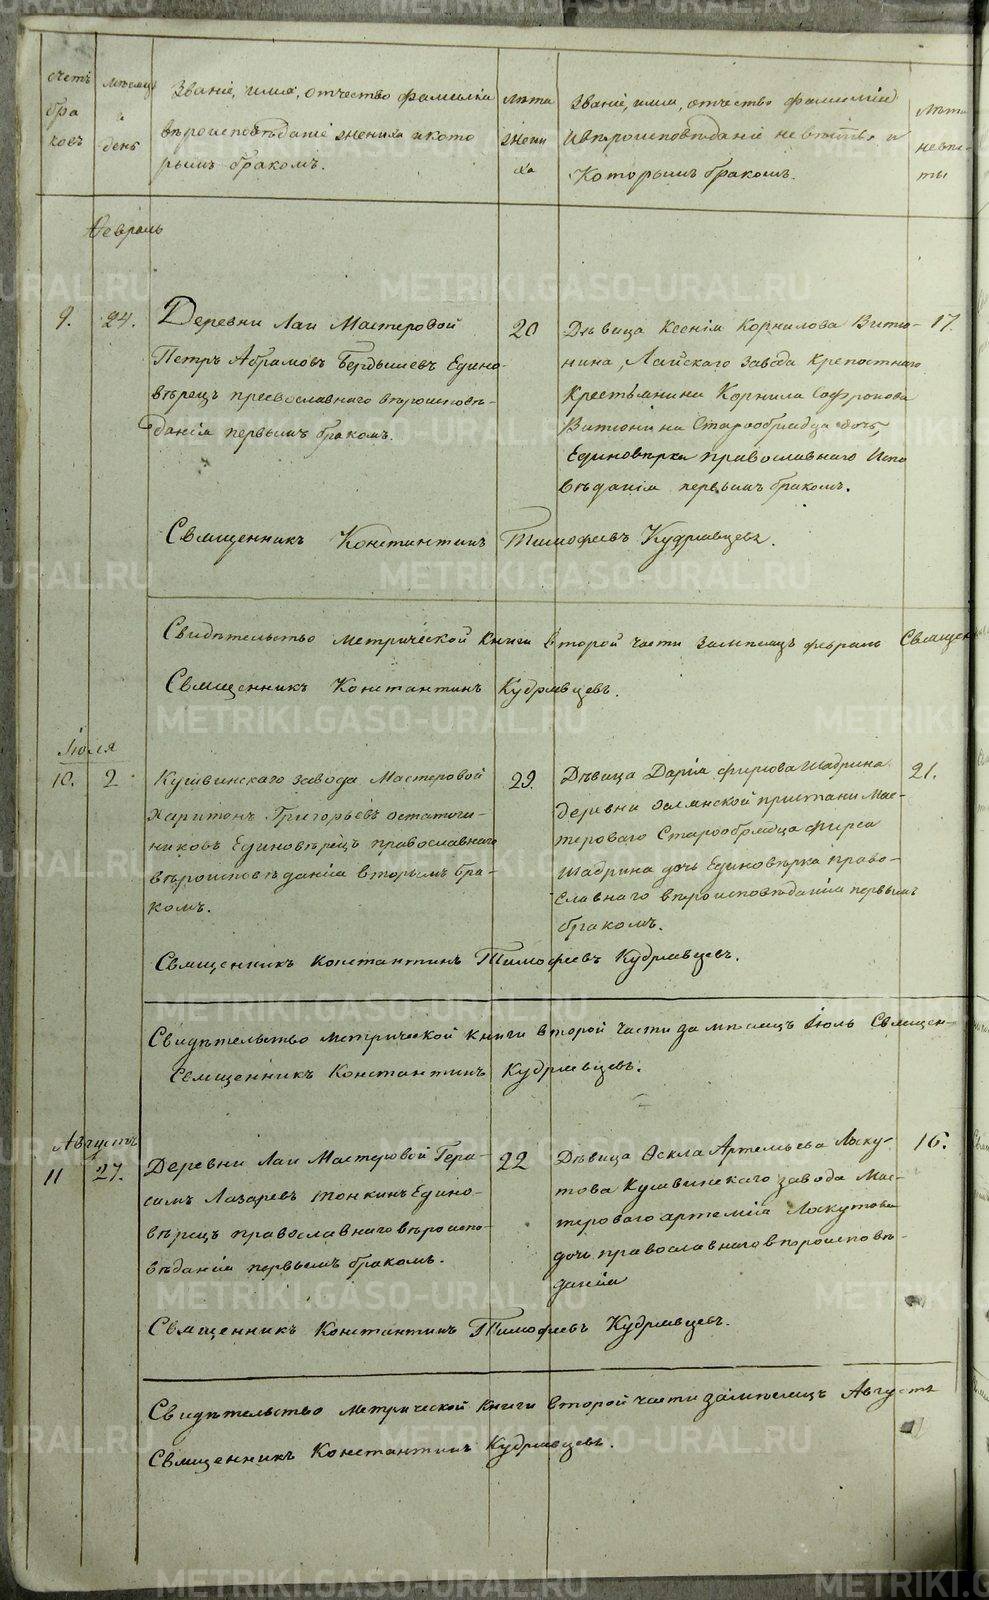 счетъ браковъ
мѣсяцъ и день
Званіе, имя, отчество фамилія
вѣроисповѣданіе жениха и кото
рымъ бракомъ.
лѣта жениха
Званіе, имя, отчество фамилія
и вѣроисповѣданіе невѣсты и
которымъ бракомъ.
лѣта невѣсты
Февраль
9. 24.
Деревни Лаи Мастеровой
Петръ Абрамовъ Бердышевъ Едино-
вѣрецъ православнаго вѣроисповѣ-
данія первымъ бракомъ.
20
Дѣвица Ксенія Корнилова Витю-
нина, Лайскаго завода Крепостнаго
Крестьянина Корнила Софронова
Витюнина Старообрядца дочь,
Единовѣрка православнаго Испо
вѣданія первымъ бракомъ.
17.
Священникъ Константинъ Тимофеевъ Кудрявцевъ.
Свидѣтельство метрической книги второй части за мѣсяцъ февраль Священ
Священникъ Константинъ Кудрявцевъ.
Іюля
10. 2
Кушвинскаго завода Мастеровой
Харитонъ Григорьевъ Остаточн-
иковъ Единовѣрецъ православнаго
вѣроисповѣданія вторымъ бра-
комъ.
29.
Дѣвица Дарія Фирсова Шадрина
деревни Ослянской пристани Мас-
тероваго Старообрядца Фирса
Шадрина дочь Единовѣрка право-
славнаго вѣроисповѣданія первымъ
бракомъ.
21.
Священникъ Константинъ Тимофеевъ Кудрявцевъ.
Свидѣтельство метрической книги второй части за мѣсяцъ Іюль Священ-
Священникъ Константинъ Кудрявцевъ.
Августъ
11 27.
Деревни Лаи Мастеровой Гера-
симъ Лазаревъ Тонкинъ Едино-
вѣрецъ православнаго вѣроиспо-
вѣданія первымъ бракомъ.
22
Дѣвица Фекла Артемьева Лоску-
това Кушвинскаго завода Мас-
тероваго Артемія Лоскутова
дочь православнаго вѣроисповѣ-
данія
16.
Священникъ Константинъ Тимофеевъ Кудрявцевъ.
Свидѣтельство метрической книги второй части за мѣсяцъ Августъ
Священникъ Константинъ Кудрявцевъ.
METRIKI.GASO-URAL.RU